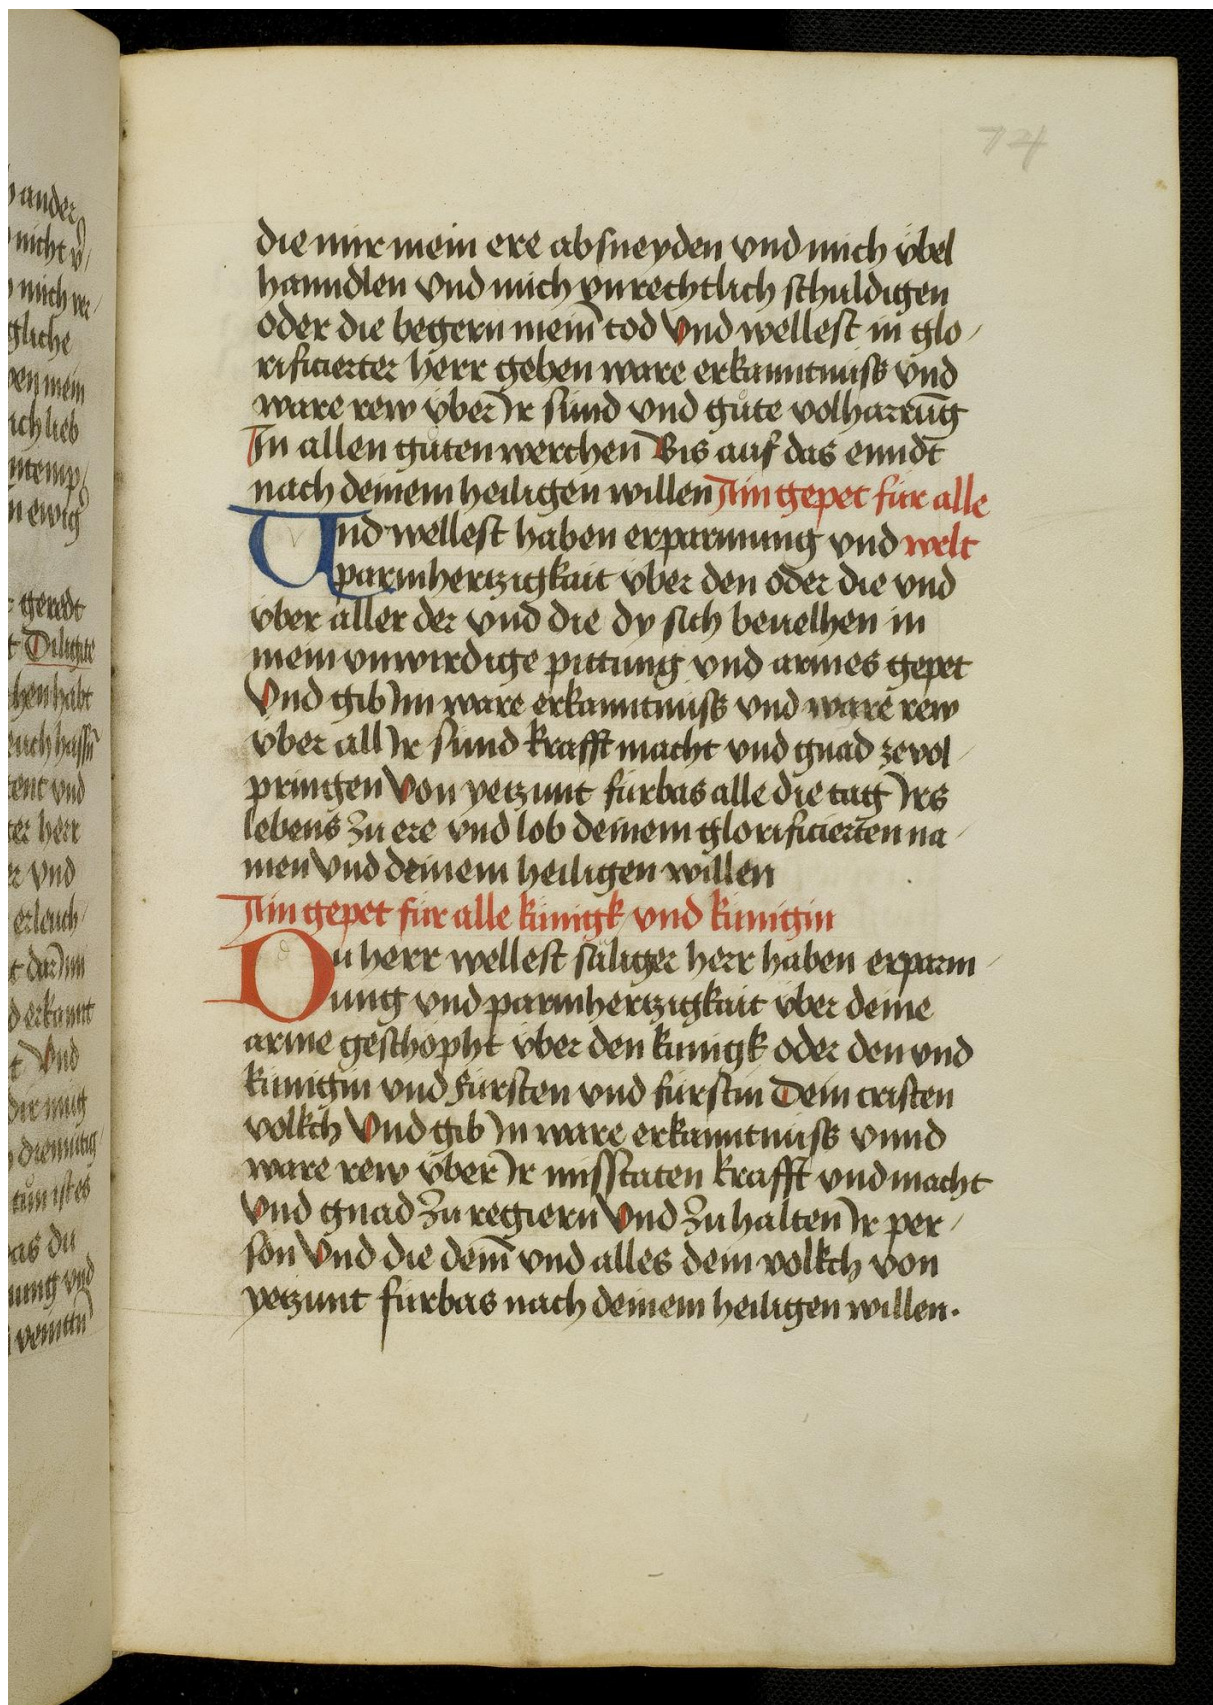 74
die mir mein ere absneyden vnd mich v̈bel
hanndlen Vnd mich vnrechtlich schuldigen
oder die begern mein̄ tod Vnd wellest in glo-
rificierter herr geben ware erkanntnuss vnd
ware rew v̈ber Ir sünd vnd gůte volharrūg
In allen gůten werchen Bis auf das ennd̄t
nach deinem heiligen willen Ain gepet für alle
Vnd wellest haben erparmung vnd welt
parmhertzigkait v̈ber den oder die vnd
v̈ber aller der vnd die dy sich beuelhen in
mein vnwirdige pittung vnd armes gepet
Vnd gib Im ware erkanntnuss vnd ware rew
v̈ber all Ir sünd krafft macht vnd gnad zevol-
pringen Von yetzunt fürbas alle die tag Irs
lebens Zu ere vnd lob deinem glorificierten na-
men Vnd deinem heiligen willen
Ain gepet für alle künigk vnd künigin
Du herr wellest säliger herr haben erparm-
ung vnd parmhertzigkait v̈ber deine
arme geschöpht v̈ber den künigk oder den vnd
künigin vnd Fürsten vnd fürstin Dein cristen
volkch Vnd gib In ware erkanntnuss vnnd
ware rew v̈ber Ir missetaten krafft vnd macht
Vnd gnad Zu regiern Vnd Zu halten Ir per-
son Vnd die dein̄ vnd alles dein volkch von
yetzunt fürbas nach deinem heiligen willen.